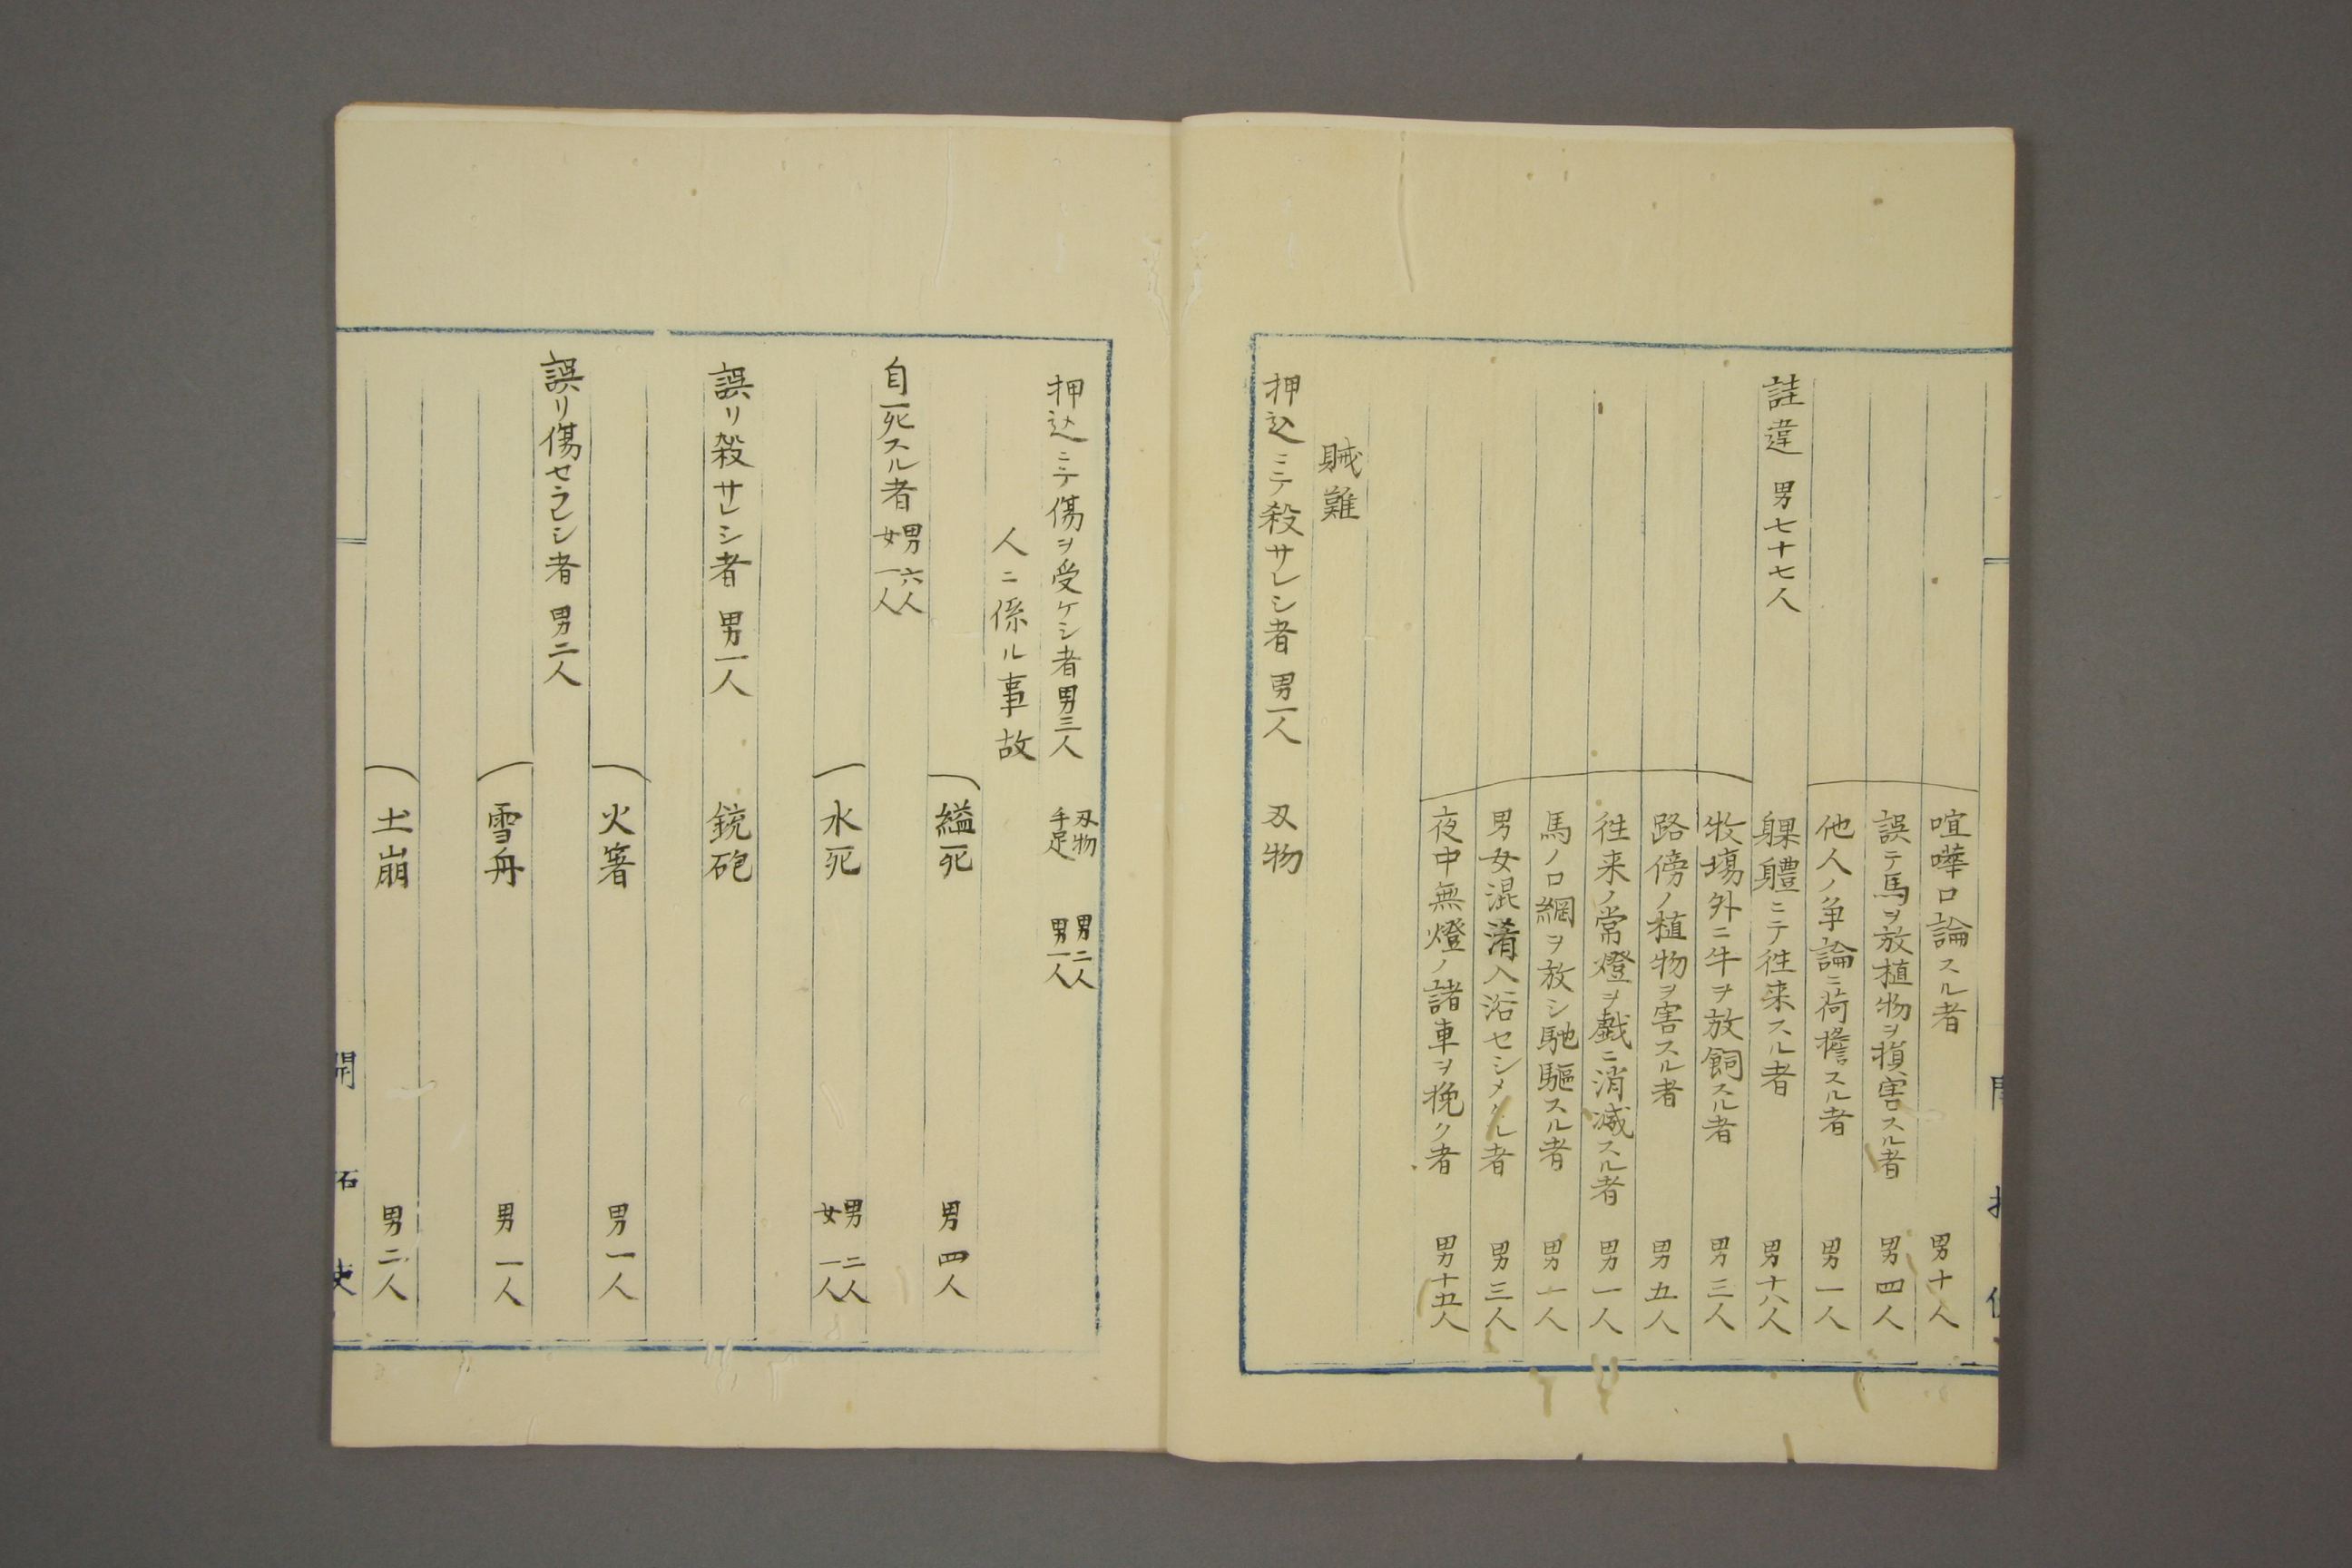 喧嘩口論スル者 男十人
誤テ馬ヲ放植物ヲ損害スル者 男四人
他人ノ争論ニ荷擔スル者 男一人
註違 男七十七人
躶軆ニテ徃来スル者 男十八人
牧塲外ニ牛ヲ放飼スル者 男三人
路傍ノ植物ヲ害スル者 男五人
徃来ノ常燈ヲ戯ニ消滅スル者 男一人
馬ノ口網ヲ放シ馳驅スル者 男一人
男女混淆入浴セシメタル者 男三人
夜中無燈ノ諸車ヲ挽ク者 男十五人
賊難
押込ニテ殺サレシ者 男一人 刃物
押込ニテ傷ヲ受ケシ者男三人 刃物 男二人
手足 男一人
人ニ係ル事故
縊死 男四人
自死スル者 男六人
女一人
水死 男二人
女一人
誤リ殺サレシ者 男一人 銃砲
火箸 男一人
誤リ傷セラレシ者 男二人
雪舟 男一人
土崩 男二人
開 石